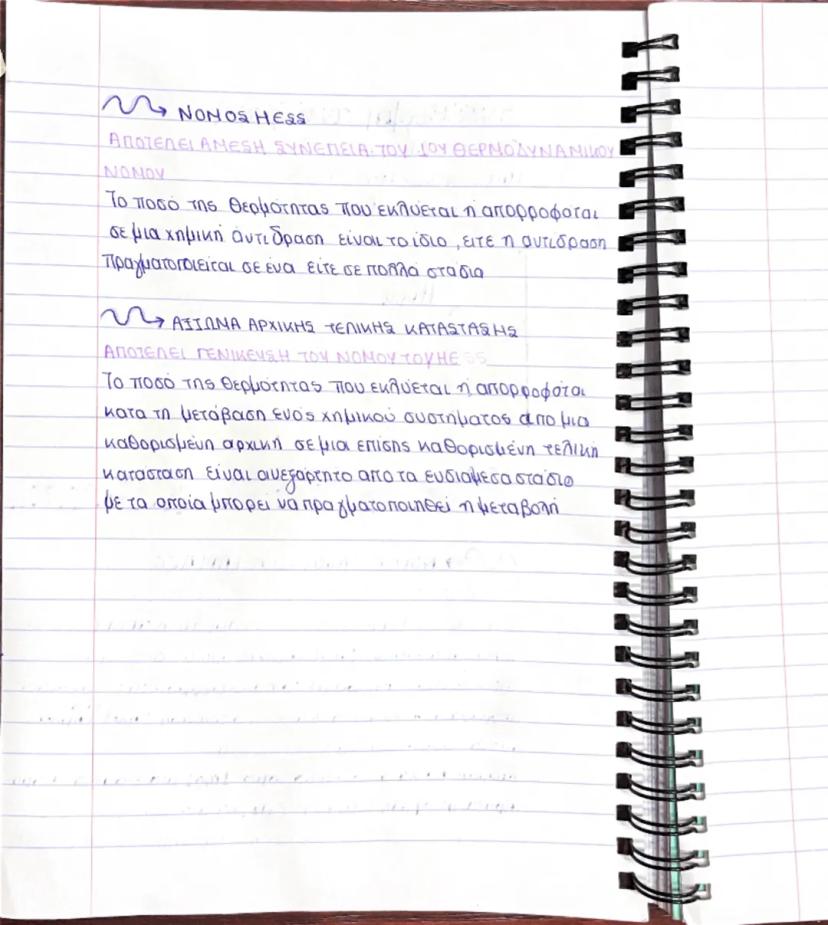 ΝΟΜΟΣ HESS
ΑΠΟΤΕΛΕΙ ΑΜΕΣΗ ΣΥΝΕΠΕΙΑ ΤΟΥ 1ΟΥ ΘΕΡΜΟΔΥΝΑΜΙΚΟΥ
ΝΟΜΟΥ
Το ποσό της θερμότητας που εκλύεται ή απορροφάται
σε μια χημική αντίδραση είναι το ίδιο, είτε η αντίδραση
πραγματοποιείται σε ένα είτε σε πολλά στάδια
ΑΞΙΩΜΑ ΑΡΧΙΚΗΣ ΤΕΛΙΚΗΣ ΚΑΤΑΣΤΑΣΗΣ
ΑΠΟΤΕΛΕΙ ΓΕΝΙΚΕΥΣΗ ΤΟΥ ΝΟΜΟΥ ΤΟΥ HESS
Το ποσό της θερμότητας που εκλύεται ή απορροφάται
κατά τη μετάβαση ενός χημικού συστήματος από μια
καθορισμένη αρχική σε μια επίσης καθορισμένη τελική
κατάσταση είναι ανεξάρτητο από τα ενδιάμεσα στάδια
με τα οποία μπορεί να πραγματοποιηθεί η μεταβολή